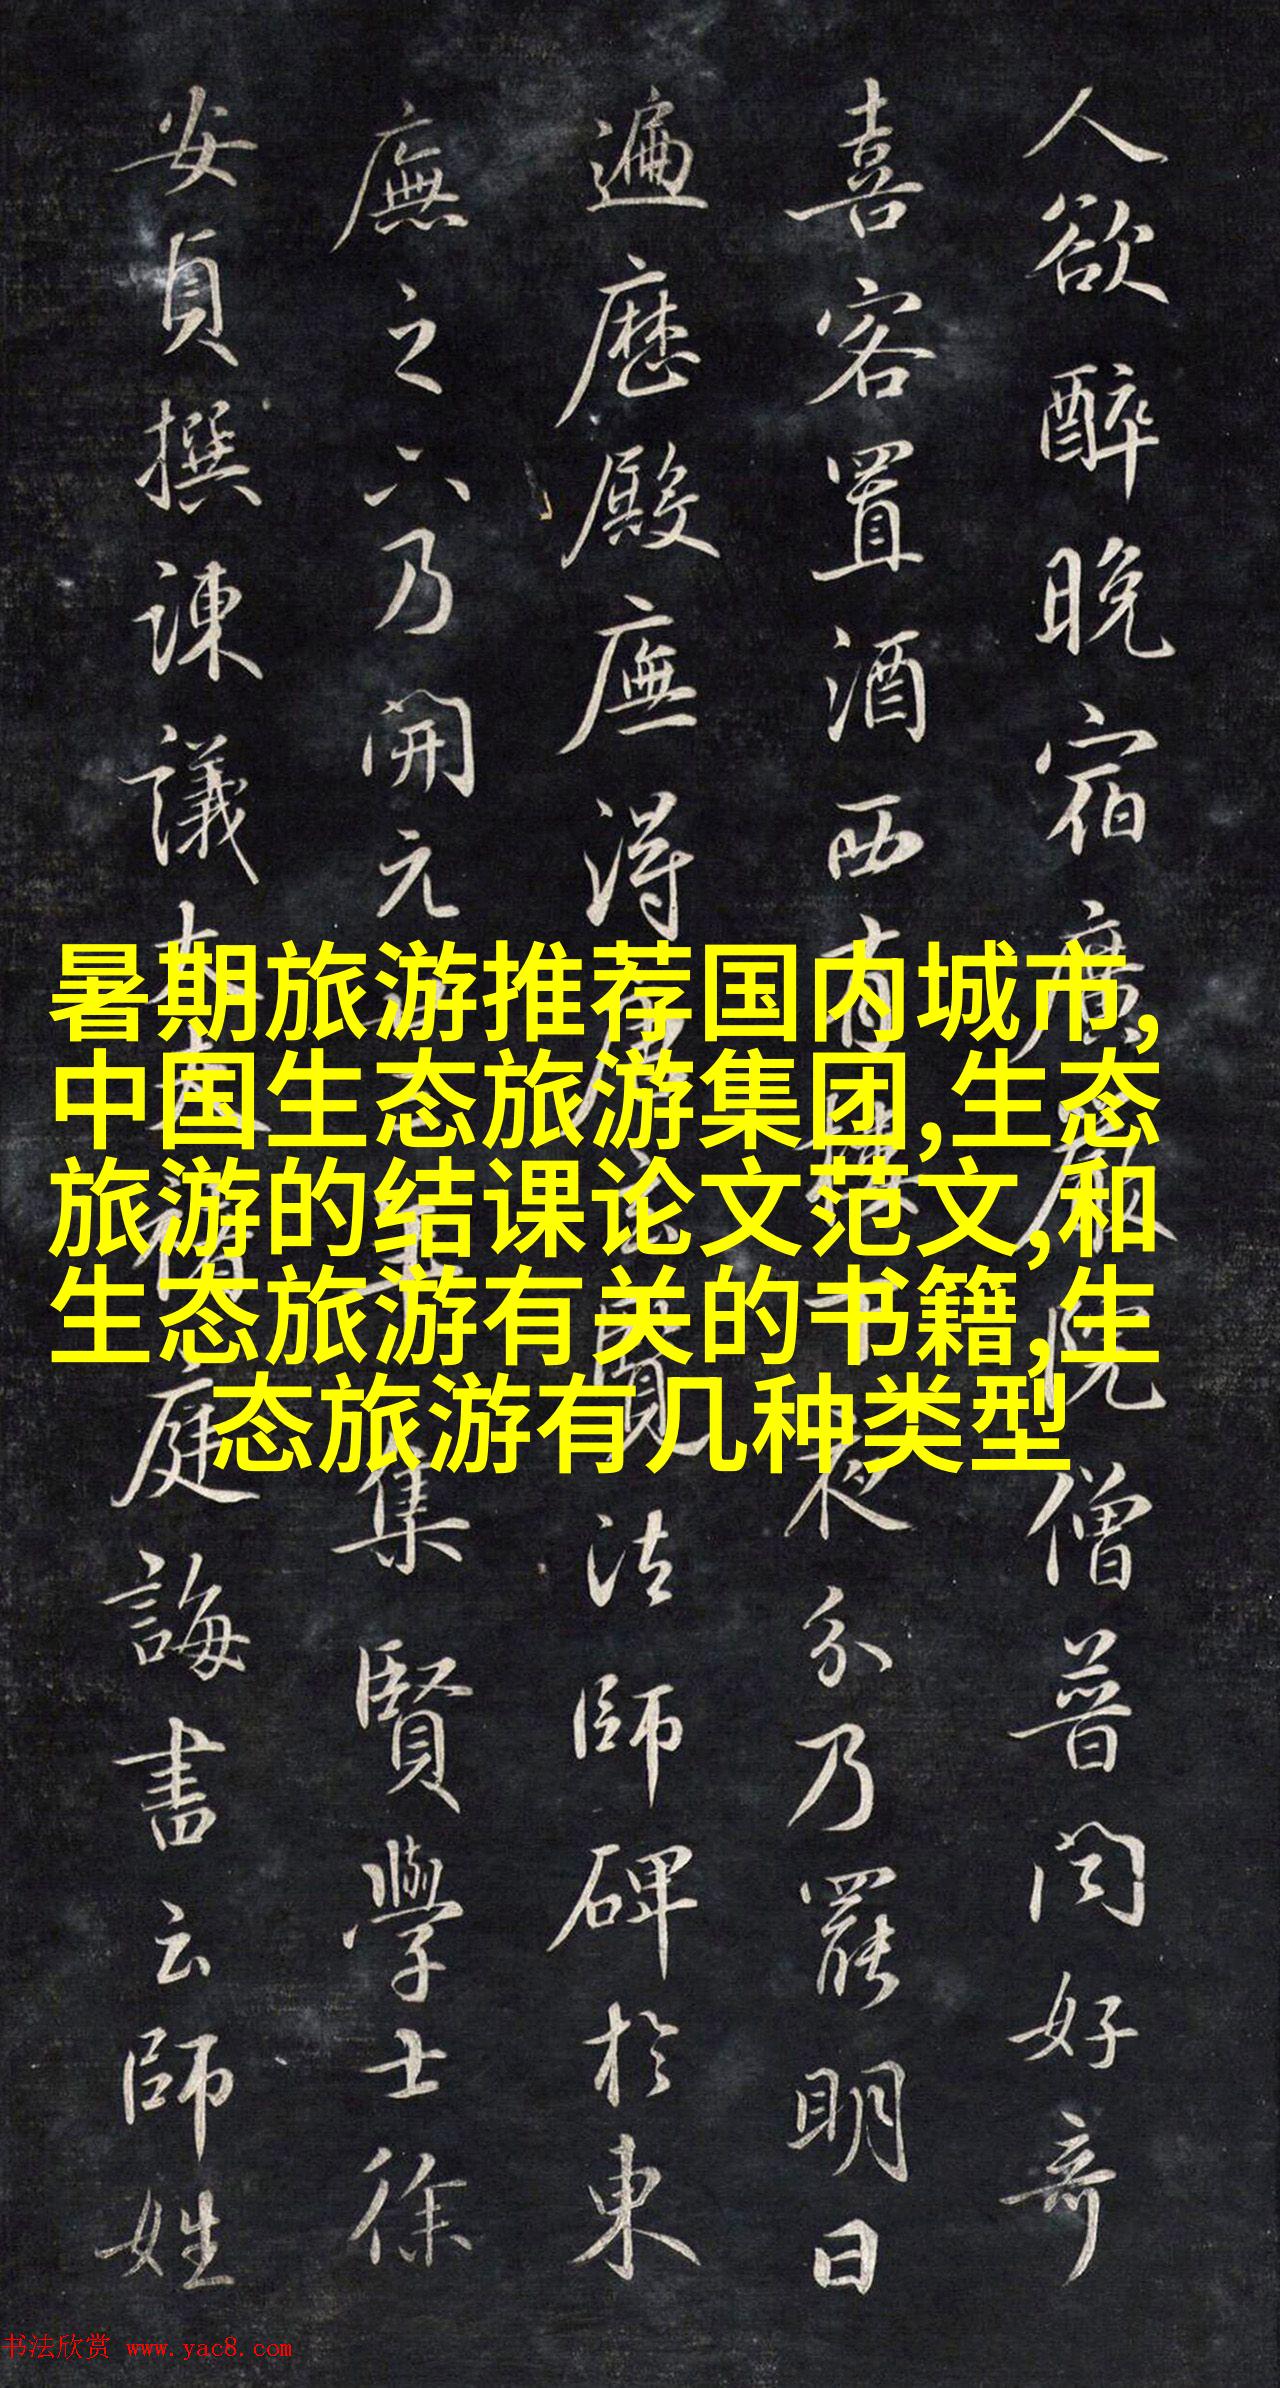 人欲醉晚宿廣嚴院僧普闻好竒
喜客置酒西有樓夜分乃罷明日
遍歷殿廡得唐玄覽法師碑於東
廡之下乃開元集賢學士徐
安貞撰諫議大夫褚庭誨書云師姓
暑期旅游推荐国内城市,
中国生态旅游集团,生态
旅游的结课论文范文,和
生态旅游有关的书籍,生
态旅游有几种类型
书法欣赏 www.yac8.com